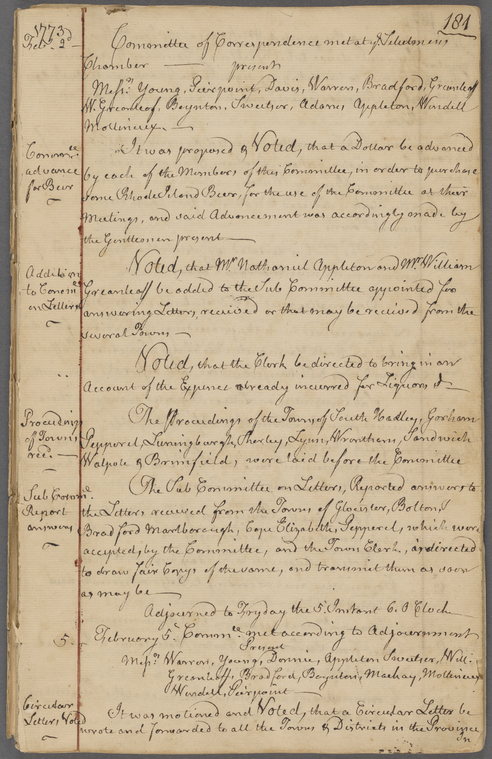 181
1773
Feb. 2d
Committee of Correspondence met at ye Selectmens
Chamber — present
Messrs Young, Peirpoint, Davis, Warren, Bradford, Greenleaf
W. Greenleaf, Boynton, Sweetser, Adams Appleton, Windell
Mollineux. —
Comme.
advance
for Beer
It was proposed & Voted, that a Dollar be advanced
by each of the Members of this Committee, in order to purchase
some Rhode Island Beer, for the use of the Committee at their
Meetings, and said Advancement was accordingly made by
the Gentlemen present —
Addition
to Comme.
on Letters
Voted, that Mr. Nathaniel Appleton and Mr. William
Greenleaff be added to the Sub Committee appointed for
answering Letters, received or that may be received from the
several Towns —
Voted, that the Clerk be directed to bring in an
Account of the Expence already incurred for Liquors &c —
Proceedings
of Towns
recd. —
The Proceedings of the Towns of South Hadley, Gorham
Pepperel, Luningburgh, Sherley, Lynn, Wrentham, Sandwich
Walpole & Brimfield, were laid before the Committee
Sub Comme.
Report
answers
The Sub Committee on Letters, Reported answers to
the Letters received from the Towns of Glocester, Bolton,
Bradford Marlborough, Cape Elizabeth, Pepperel, which were
accepted by the Committee, and the Town Clerk, is directed
to draw fair Copys of the same, and transmit them as soon
as may be —
Adjourned to Fryday the 5. Instant 6. O Clock
5.
February 5. Comme. met according to Adjournment
Present
Messrs Warren, Young, Dennie, Appleton Sweetser, Will:
Greenleaff, Bradford, Boynton, Mackay, Mollineux
Windell, Peirpoint —
Circular
Letters, Voted
It was motioned and Voted, that a Circular Letter be
wrote and forwarded to all the Towns & Districts in the Province
in